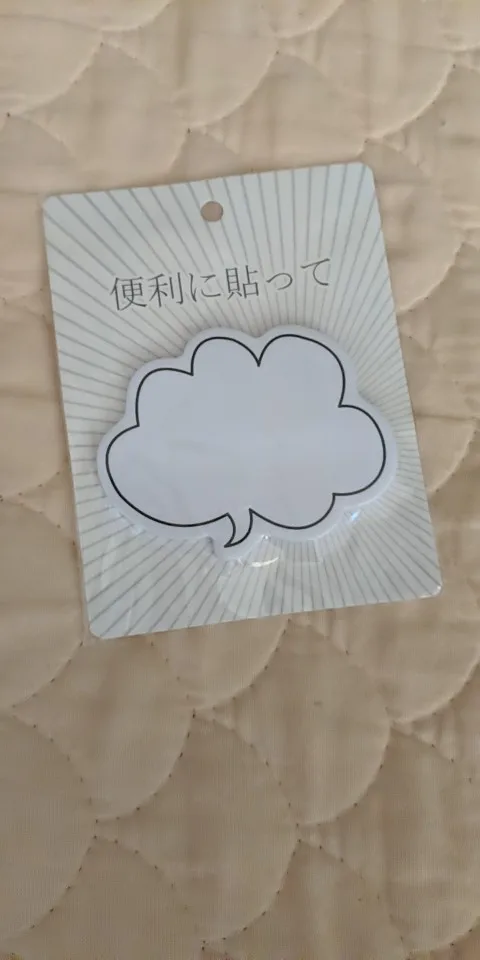 便利に貼って